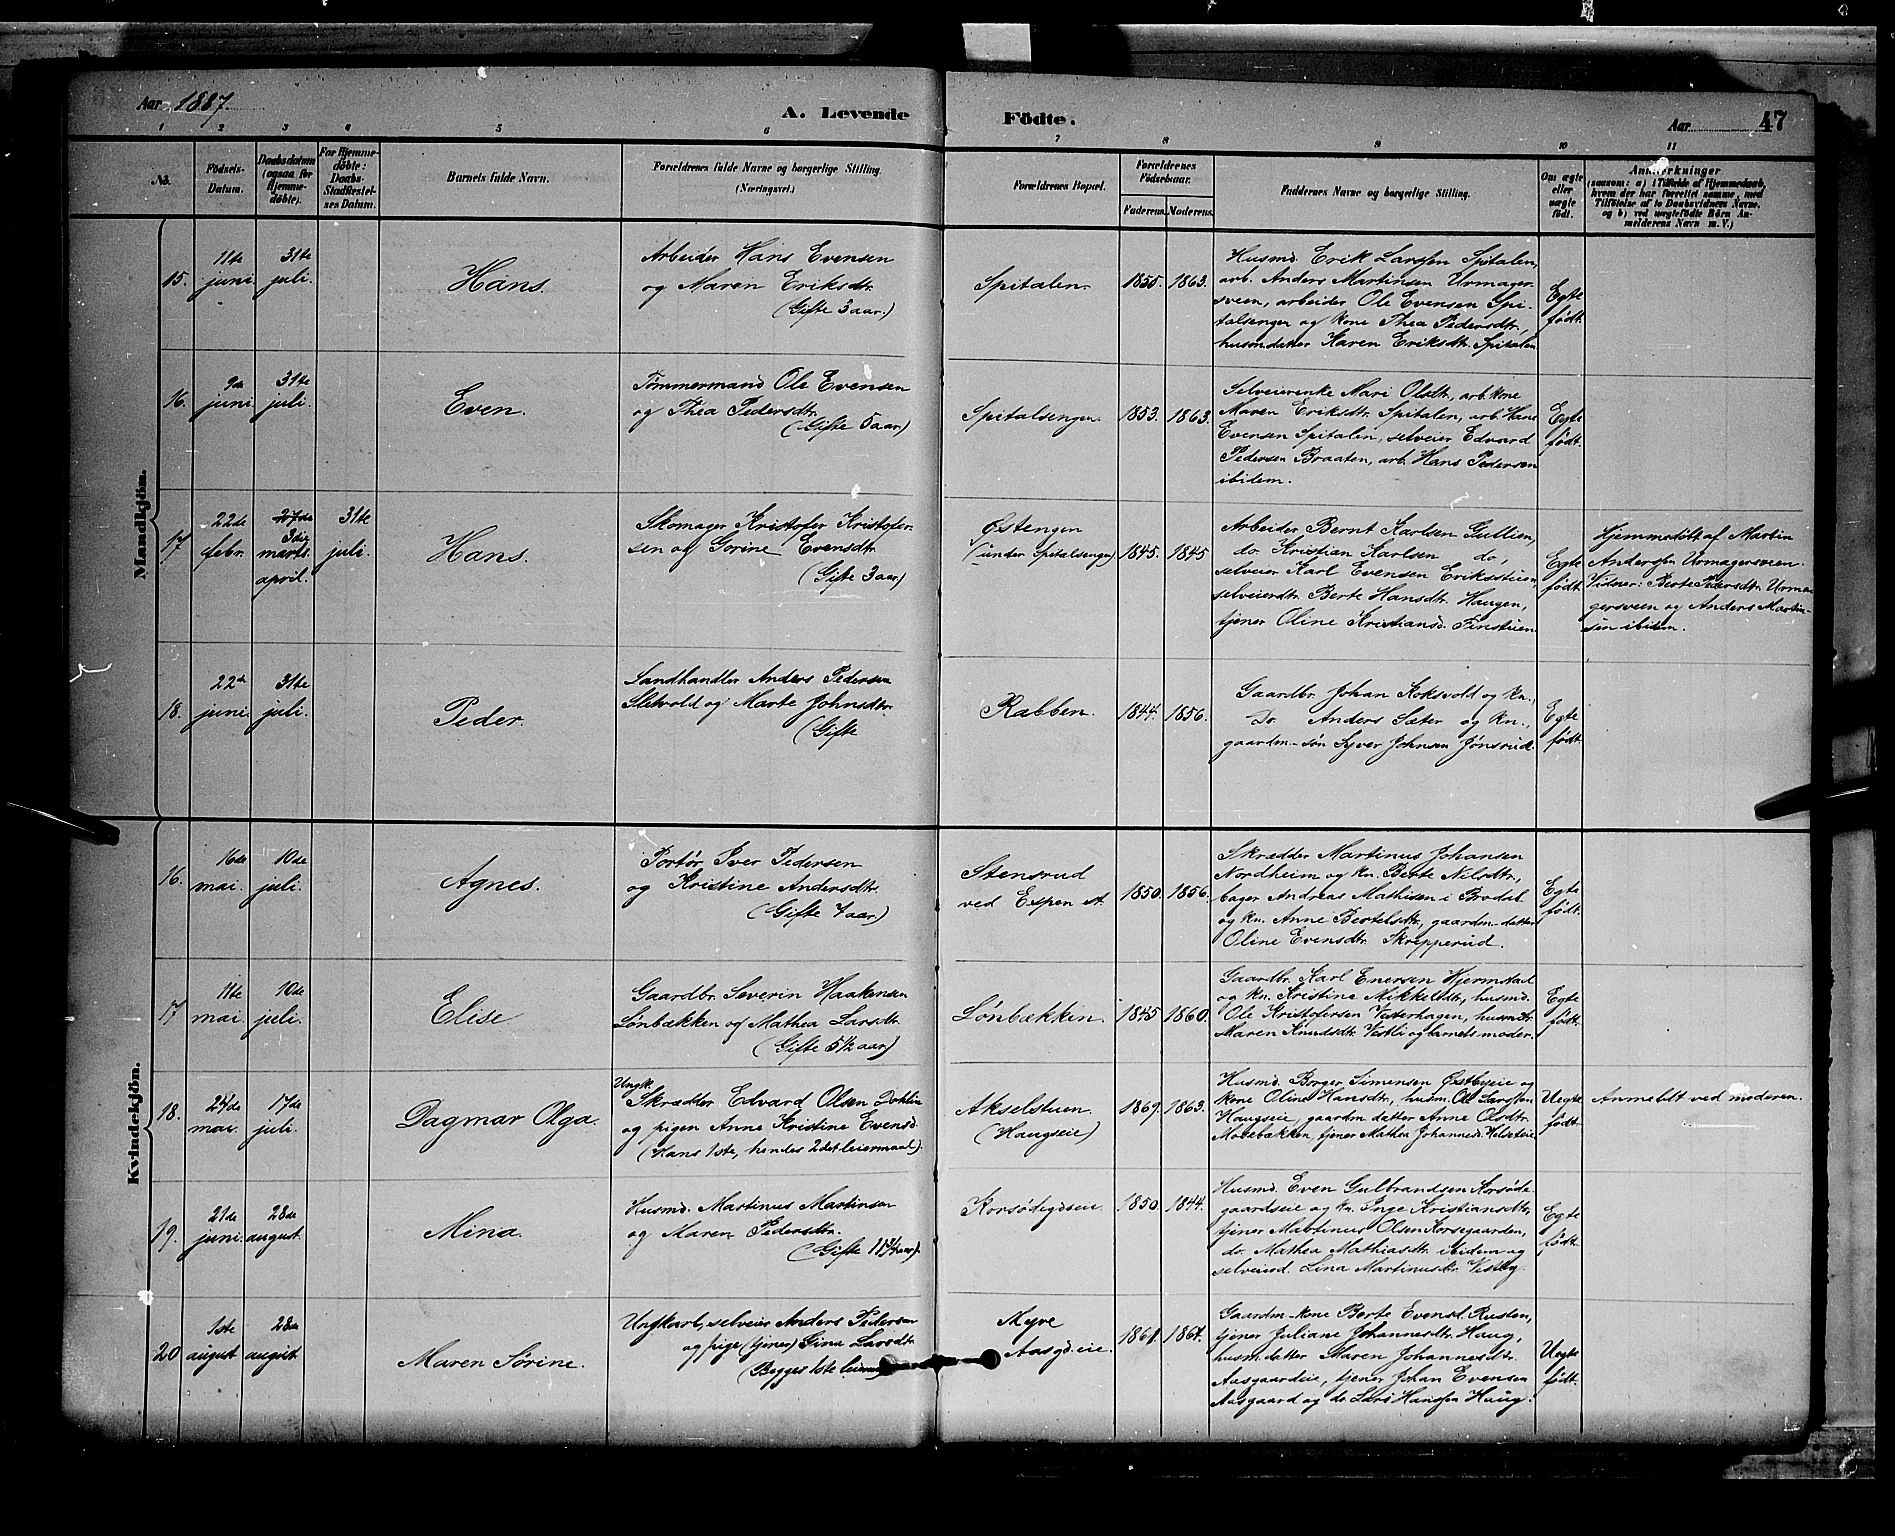 Aar 1887.
A. Levende Födte.
Aar 47
1 2 3 4 5 6 7 8 9 10 11
No.
Födsels-
Datum.
Daabsdatum
(ogsaa for
Hjemme-
döbte).
For Hjemme-
döbte:
Daabs-
Stadfæstel-
ses Datum.
Barnets fulde Navn.
Forældrenes fulde Navne og borgerlige Stilling.
(Næringsvei.)
Forældrenes Bopæl.
Forældrenes
Födselsaar.
Faderens. Moderens.
Faddernes Navne og borgerlige Stilling.
Om ægte
eller
uægte
födt.
Anmærkninger
(saasom: a) i Tilfælde af Hjemmedaab,
hvem der har forrettet samme, med
Tilföielse af to Daabsvidners Navne,
og b) ved uægtefödte Börn An-
melderens Navn m. V.)
Mandkjön.
15.
11te
juni
31te
juli.
Hans.
Arbeider Hans Evensen
og Maren Eriksdtr.
(Gifte 3 aar.)
Spitalen.
1855. 1863.
Husmd. Erik Larssen Spitalen,
arb. Anders Martinsen Urmager-
sveen, arbeider Ole Evensen Spi-
talsengen og kone Thea Pedersdtr.,
husmdatter Karen Eriksdtr. Spitalen
Egte
født.
16.
9de
juni
31te
juli.
Even.
Tømmermand Ole Evensen
og Thea Pedersdtr.
(Gifte 5 aar)
Spitalsengen.
1853. 1863.
Selveierenke Mari Olsdtr., arb. kone
Maren Eriksdtr. Spitalen, arb. Hans
Evensen Spitalen, selveier Edvard
Pedersen Braaten, arb. Hans Pedersen
ibidem.
Egte
født.
17
22de
febr.
27de
3die
marts.
april.
31te
juli.
Hans.
Skomager Kristofer Kristofer-
sen og Gorine Evensdtr.
(Gifte 3 aar)
Østengen
(under Spitalsengen)
1845. 1845
Arbeider Bernt Karlsen Gullien,
do. Kristian Karlsen do,
selveier Karl Evensen Eriksstuen,
selveierdtr. Berte Hansdtr. Haugen,
tjener Oline Kristiansd. Finstuen
Egte
født.
Hjemmedøbt af Martin
Anderssen Urmagersveen.
Vidner: Berte Pedersdtr. Urma-
gersveen og Anders Martin-
sen ibidem.
18.
22de
juni.
31te
juli.
Peder.
Landhandler Anders Pedersen
Sletvold og Marte Johnsdtr.
(Gifte
Rabben.
1844. 1856.
Gaardbr. Johan Koksvold og kn.,
Do Anders Sæter og kn.,
gaardm-søn Syver Johnsen Jønsrud.
Egte
født.
Kvindekjön.
16.
16de
mai.
10de
juli.
Agnes.
Portør Iver Pedersen
og Kristine Andersdtr.
(Gifte 7 aar)
Stensrud
ved Espen st.
1850. 1856.
Skrædder Martinus Johansen
Nordheim og kn. Berte Nilsdtr.,
bager Andreas Mathisen i Brodal
og kn. Anne Bertelsdtr., gaardm-datter
Oline Evensdtr. Skrepperud.
Egte
født.
17
11te
mai.
10de
juli.
Elise
Gaardbr. Severin Haakensen
Lønbækken og Mathea Larsdtr.
(Gifte 5½ aar)
Lønbækken.
1845 1860.
Gaardbr. Karl Enersen Hjermstad
og kn. Kristine Mikkelsdtr., husmd.
Ole Kristofersen Vesterhagen, husmdtr.
Maren Knudsdtr. Vestli og barnets moder.
Egte
født.
18.
24de
mai.
17de
juli.
Dagmar Olga.
Ungk.
Skrædder Edvard Olsen Dahlin
og pigen Anne Kristine Evensd.
(Hans 1ste, hendes 2det leiermaal).
Akselstuen.
(Haugseie)
1869. 1863.
Husmd. Borger Simensen Østbyeie og
kone Oline Hansdtr., husm. Ole Larssen
Haugseie, gaardm. datter Anne Olsdtr.
Mosebækken, tjener Mathea Johannesd. Helseteie.
Uegte
født.
Anmeldt ved moderen.
19.
21de
juni.
28de
august.
Mina.
Husmd. Martinus Martinsen
og Maren Pedersdtr.
(Gifte 11¾ aar).
Korsødegdseie.
1850. 1844.
Husmd. Even Gulbrandsen Korsøde-
gaardseie og kn. Inge Kristiansdtr.,
tjener Martinus Olsen Korsegaarden,
do. Mathea Mathiasdtr. ibidem og
selveierd. Lina Martinusdtr. Vestby.
Egte
født.
20
1ste
august
28de
august.
Maren Sørine.
Ungkarl, selveier Anders Pedersen
og pige (tjener) Gina Larsdtr.
(Begges 1ste
Myre
Aasgdeie.
1861. 1867.
Gaardm-kone Berte Evensd. Rusten,
tjener Juliane Johannesdtr. Haug,
husmdatter Maren Johannesdtr.
Aasgaardeie, tjener Johan Evensen
Aasgaard og do. Lars Hanssen Haug.
Uegte
født.